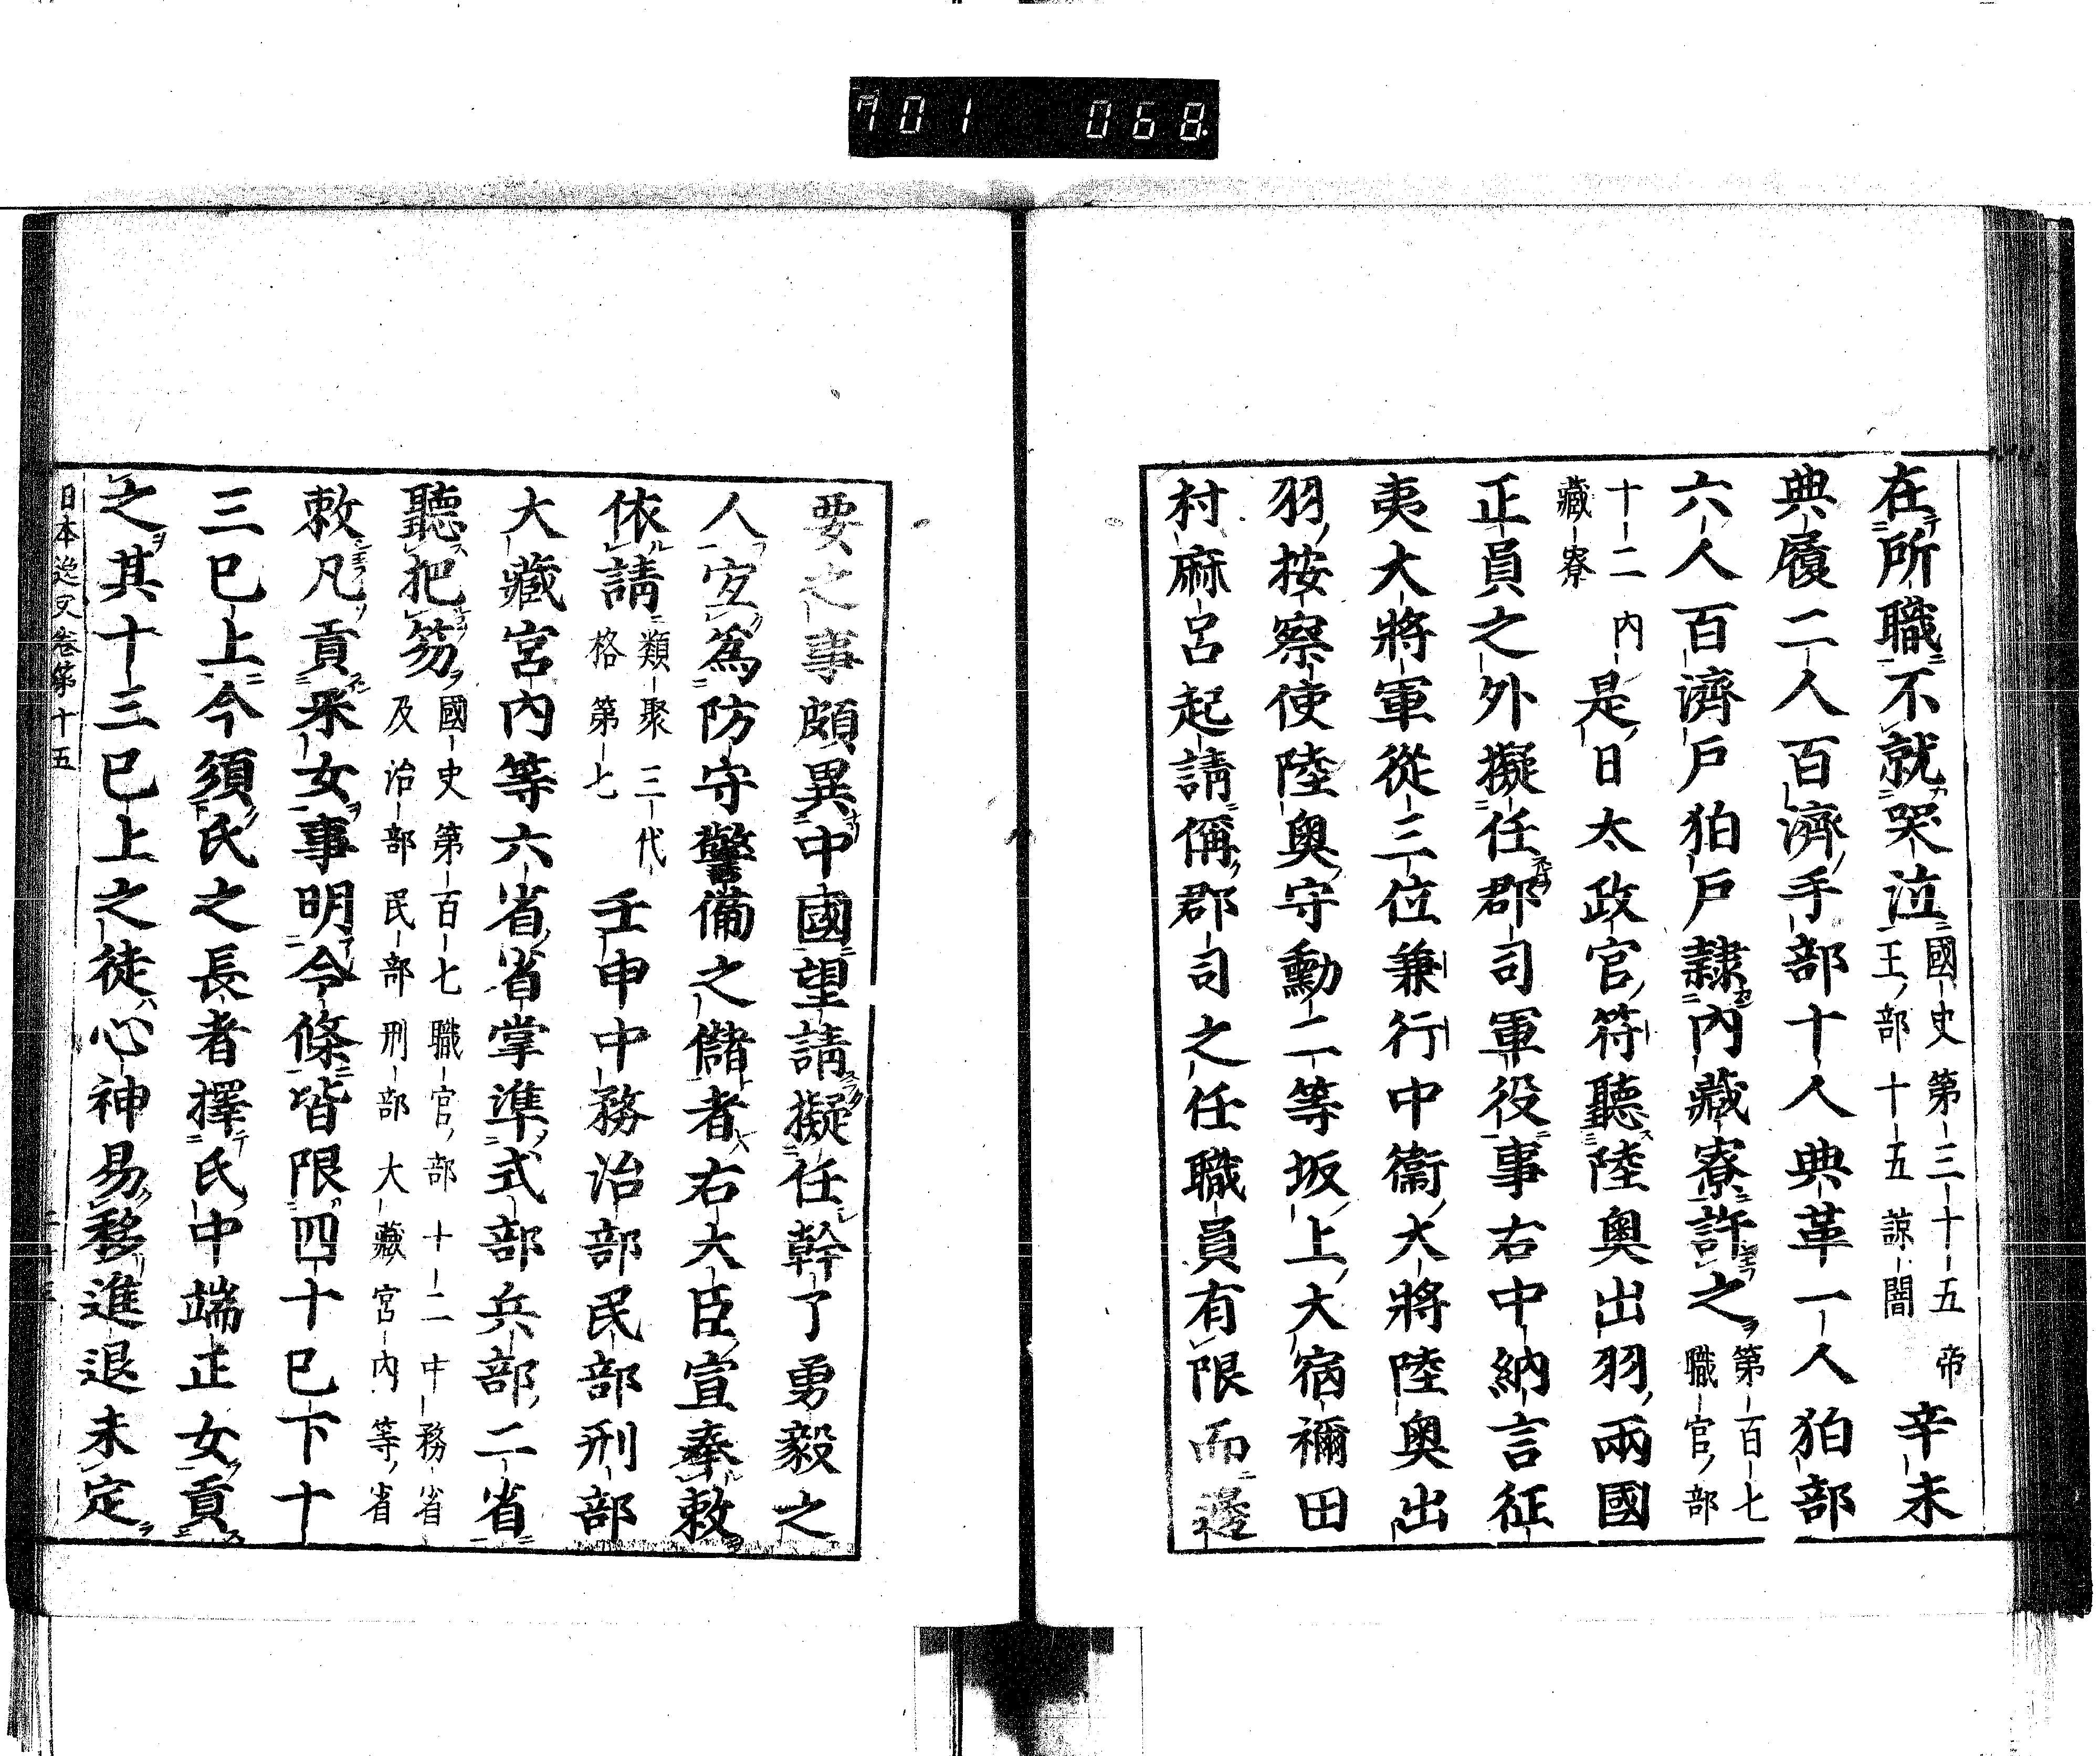 701 068
在所職不就哭泣國史第三十五帝王部十五諒闇辛未
典履二人百濟手部十人典革一人狛部
六人百濟戶狛戶隷內藏寮許之第百七職官部
十二內藏寮是日太政官符聽陸奧出羽兩國
正員之外擬任郡司軍役事右中納言征
夷大將軍從三位兼行中衞大將陸奧出
羽按察使陸奧守勳二等坂上大宿禰田
村麻呂起請偁郡司之任職員有限而邊
要之事頗異中國望請擬任幹了勇毅之
人宐爲防守警備之儲者右大臣宣奉敕
依請類聚三代格第七壬申中務治部民部刑部
大藏宮內等六省省掌準式部兵部二省
聽把笏國史第百七職官部十二中務省及治部民部刑部大藏宮內等省
敕凡貢釆女事明令條皆限四十已下十
三已上今須氏之長者擇氏中端正女貢
之其十三已上之徒心神易移進退未定
日本逸史卷第十五